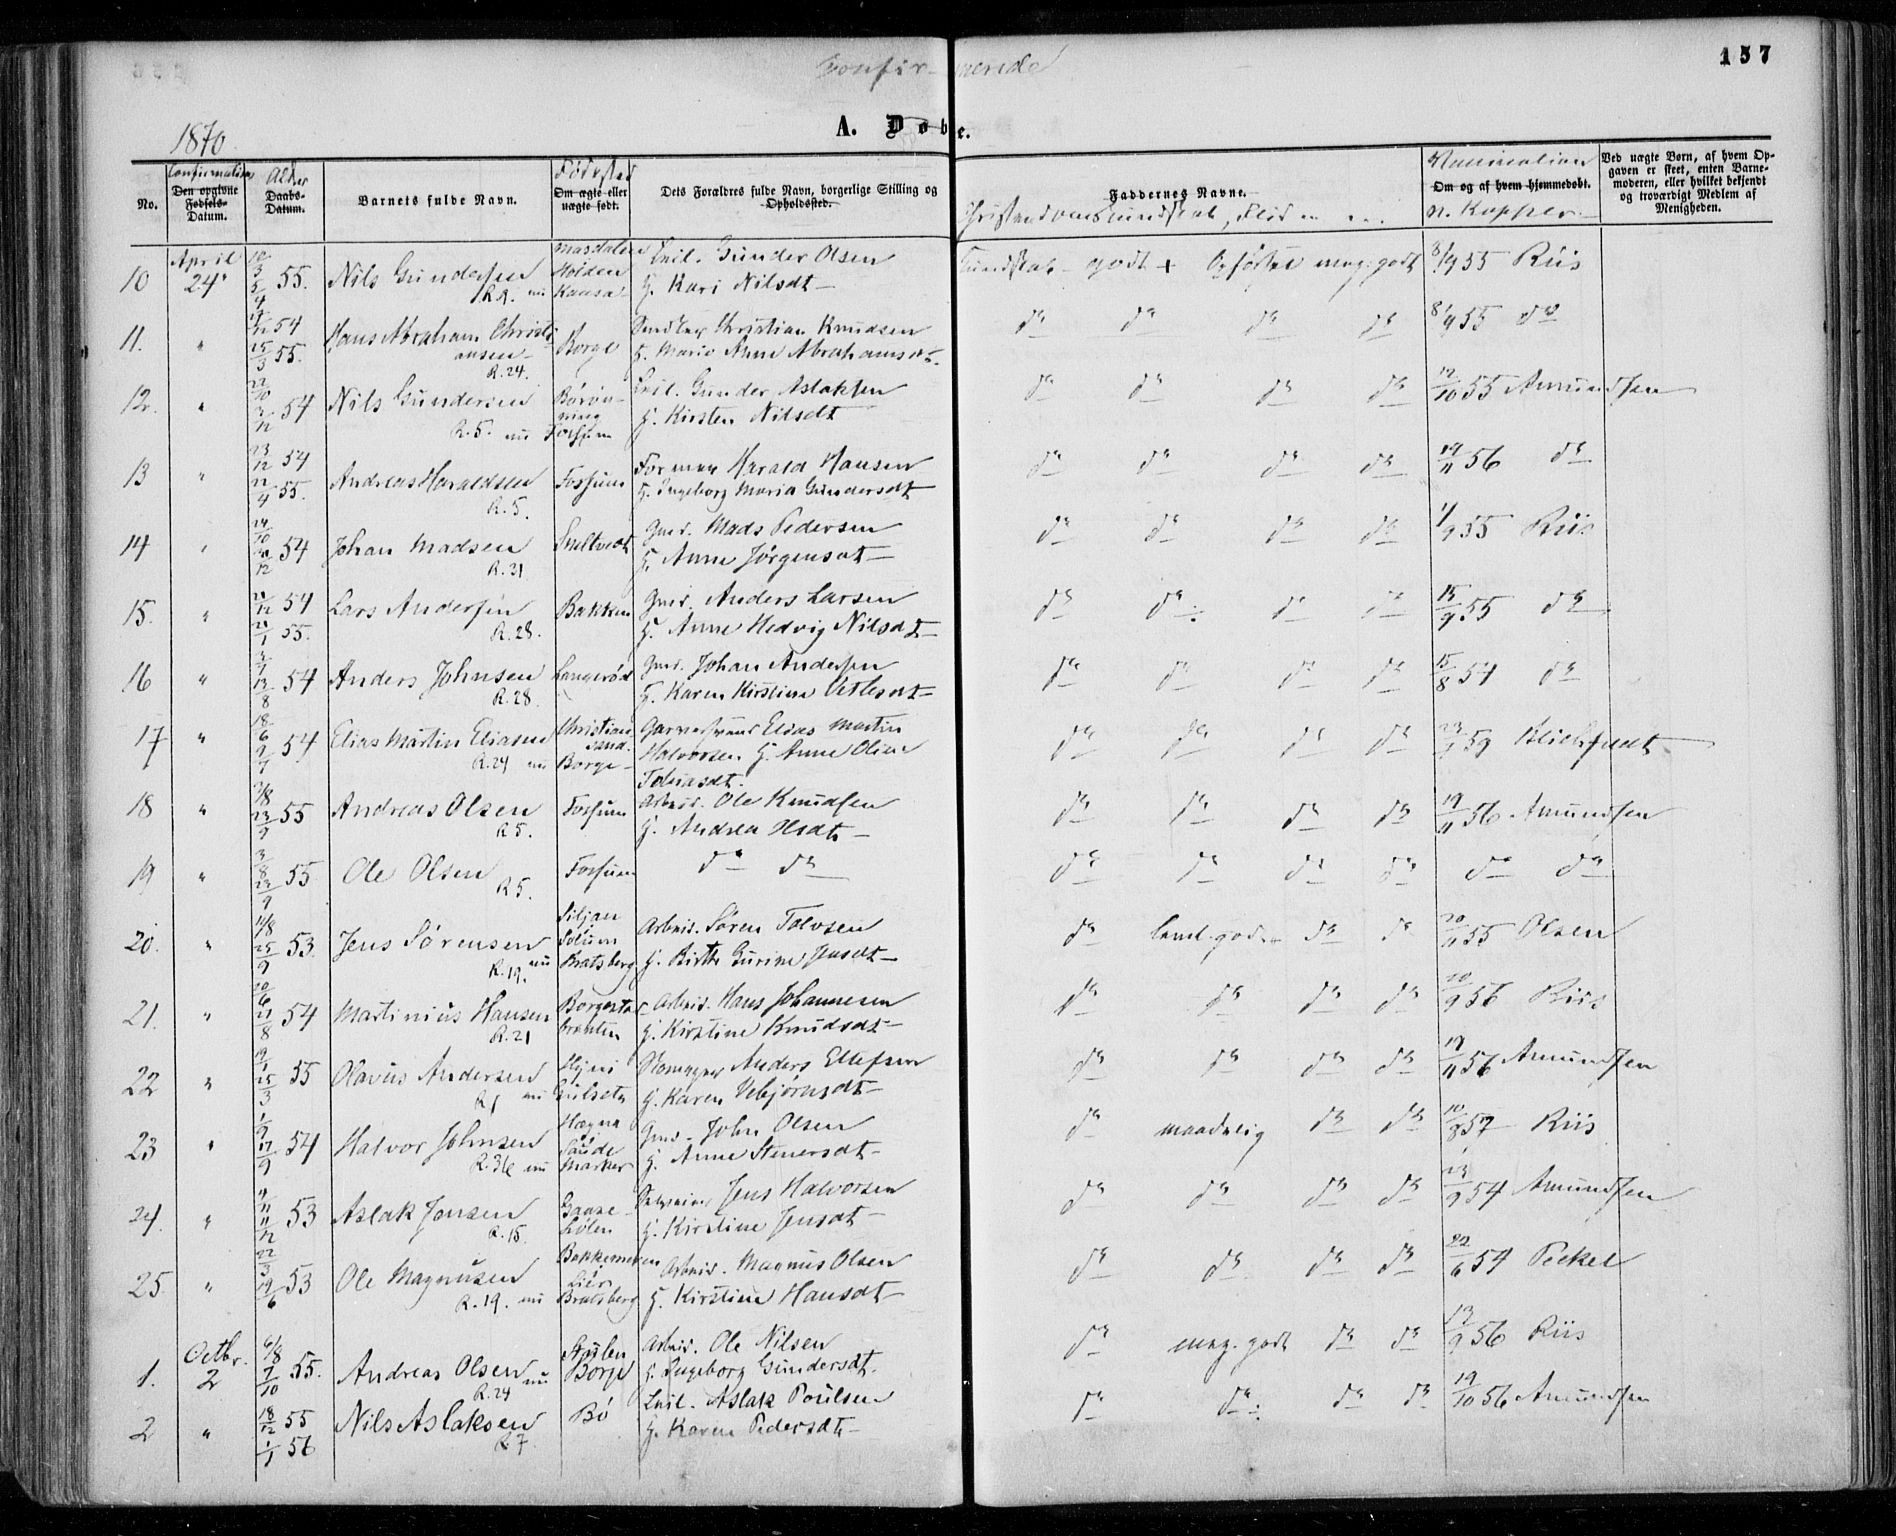 157
Confir-merende
1870
A. Døbe.
Confirmations
Alder
Fødested
Vaccination
No.
Den opgivne Fødsels-Datum.
Daabs-Datum.
Barnets fulde Navn.
Om ægte eller uægte født.
Dets Forældres fulde Navn, borgerlige Stilling og Opholdssted.
Faddernes Navne.
Christendomskundskab, Flid
Om og af hvem hjemmedøbt.
n. Kopper
Ved uægte Børn, af hvem Opgaven er skeet, enten Barnemoderen, eller hvilket bekjendt og troværdigt Medlem af Menigheden.
10 April 24 55. Nils Gundersen R.9. nu Holden Gunder Olsen
G. Kari Nilsdt
Kundskab godt + Opførsel meg. godt 8/9 55 Riis
11. " 54 25/3 55. Hans Abraham Christiansen R.24. Borge Christian Knudsen
G. Marie Anne Abrahamsdt. dº dº dº dº 8/9 55 dº
12. " 22/10 54 Nils Gundersen R.5. nu Fossum Gunder Aslaksen
G. Kirsten Nilsdt dº dº dº dº 12/10 55 Amundsen
13 " 23/12 54 22/4 55. Andreas Haraldsen R.5. Fossum Former Harald Hansen
G. Ingeborg Maria Gundersdt dº dº dº dº 19/11 56 dº
14 " 24/10 12 54 Johan Madsen R.31 Smeltvedt Gmd. Mads Pedersen
G. Anne Jørgensdt dº dº dº dº 1/9 55 Riis
15. " 54 21/1 55. Lars Andersen R.28. Bakken Gmd. Anders Larsen
G. Anne Hedvig Nilsdt dº dº dº dº 15/9 55 dº
16 " 13/8 54 Anders Johnsen R.28. Langerød Gmd. Johan Andersen
G. Karen Kirstine Vetlesdt dº dº dº dº 15/8 54 dº
17 " 18/6 9/7 54 Elias Martin Eliasen R.24 nu Christiansand. Borge Garversvend Elias Martin
Halvorsen G. Anne Oline
Tobiasdt. dº dº dº dº 59 Blichfeldt
18 " 23/9 55 Andreas Olsen R5. Fossum Arbeid. Ole Knudsen
G. Andrea Olsdt dº dº dº dº 19/11 56 Amundsen
19 " 3/8 23/9 55 Ole Olsen R5. Fossum dº dº dº dº dº dº dº dº
20. " 11/8 25/9 53. Jens Sørensen R.19. nu Siljan Solum Bratsberg Arbeid. Søren Tolvsen
G. Birthe Gurine Jensdt dº teml. god. dº dº 55 Olsen
21. " 20/6 21/8 54 Martinius Hansen R.21 Borgestad Arbeid. Hans Johannesen
G. Kirstine Knudsdt dº dº dº dº 20/9 56 Riis
22 " 25/3 55 Olavus Andersen R1 nu Gulset Anders Ellefsen
G. Karen Vebjørnsdt dº dº dº dº 19/11 56 Amundsen
23 " 1/9 17/9 54 Halvor Johnsen R.36 nu Saude Marker Gmd. John Olsen
G. Anne Stenersdt dº maadelig dº dº 10/8 57 Riis
24. " 11/12 53 Aslak Jensen R.15. Jens Halvorsen
G. Kirstine Jensdt dº dº dº dº 23/9 54 Amundsen
25 " 22/3 19/6 53 Ole Magnusen R.19. nu Lier Bratsberg Arbeid. Magnus Olsen
G. Kirstine Hansdt dº dº dº dº 22/6 54 Peckel
1. Octbr. 2 6/8 7/10 55. Andreas Olsen R.24 nu Borge Arbeid. Ole Nilsen
G. Ingeborg Gundersdt. dº meg. godt dº dº 13/9 56 Riis
2 " 18/12 55 1/1 56 Nils Aslaksen R.7. Bø Aslak Poulsen
G. Karen Pedersdt dº dº dº dº 19/10 56 Amundsen